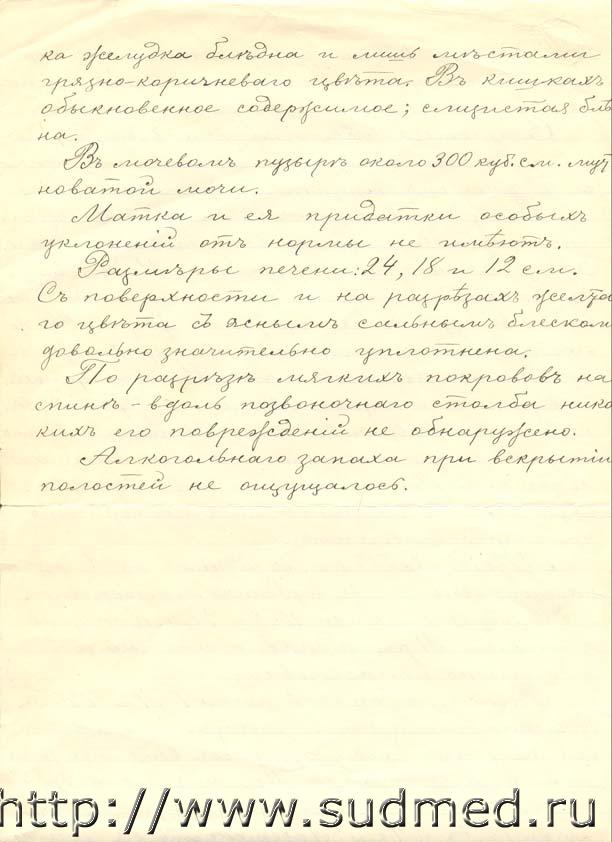 ка желудка блѣдна и лишь мѣстами
грязно-коричневаго цвѣта. Въ кишкахъ
обыкновенное содержимое; слизистая блѣ
на.
Въ мочевомъ пузырѣ около 300 куб. см. мут
новатой мочи.
Матка и ея придатки особыхъ
уклоненій отъ нормы не имѣютъ.
Размѣры печени: 24, 18 и 12 см.
Съ поверхности и на разрѣзахъ желта
го цвѣта съ яснымъ сальнымъ блеском
довольно значительно уплотнена.
По разрѣзѣ мягкихъ покрововъ на
спинѣ – вдоль позвоночнаго столба нико
кихъ его поврежденій не обнаружено.
Алкогольнаго запаха при вскрытіи
полостей не ощущалось.
http://www.sudmed.ru